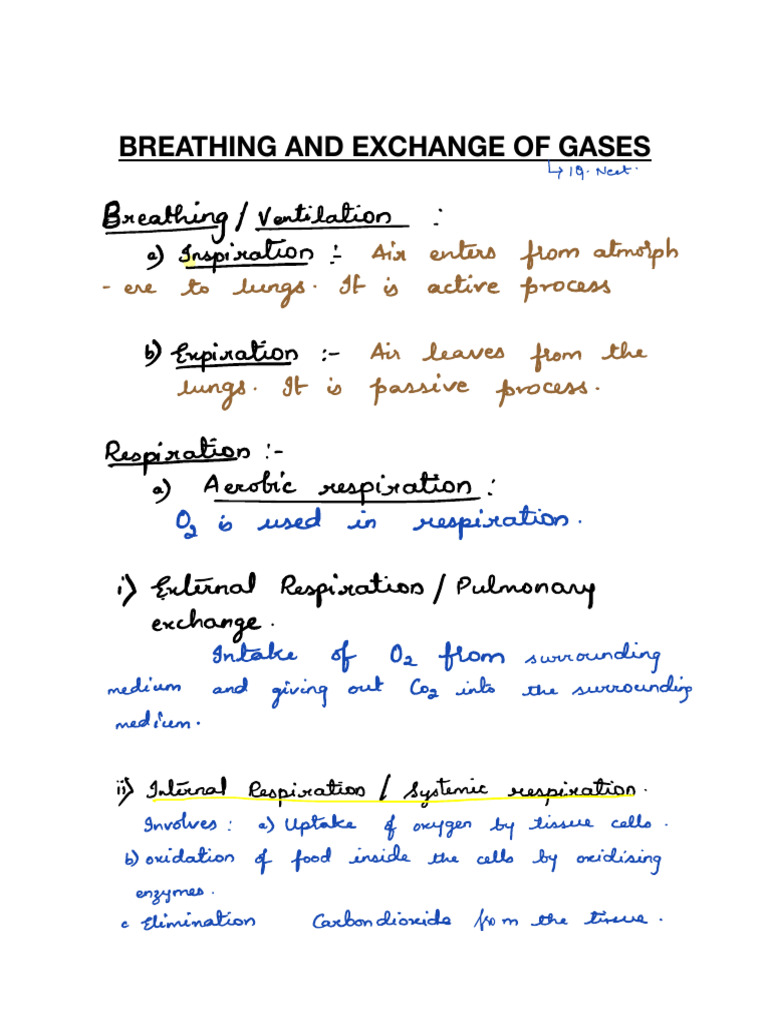 BREATHING AND EXCHANGE OF GASES
↳ 1Q. Neet.
Breathing / Ventilation :
a) Inspiration :- Air enters from atmosph
- ere to lungs. It is active process
b) Expiration :- Air leaves from the
lungs. It is passive process.
Respiration :-
a) Aerobic respiration :
O2 is used in respiration.
i) External Respiration / Pulmonary
exchange.
Intake of O2 from surrounding
medium and giving out Co2 into the surrounding
medium.
ii) Internal Respiration / Systemic respiration.
Involves : a) Uptake of oxygen by tissue cells.
b) oxidation of food inside the cells by oxidising
enzymes.
c Elimination Carbondioxide from the tissue.